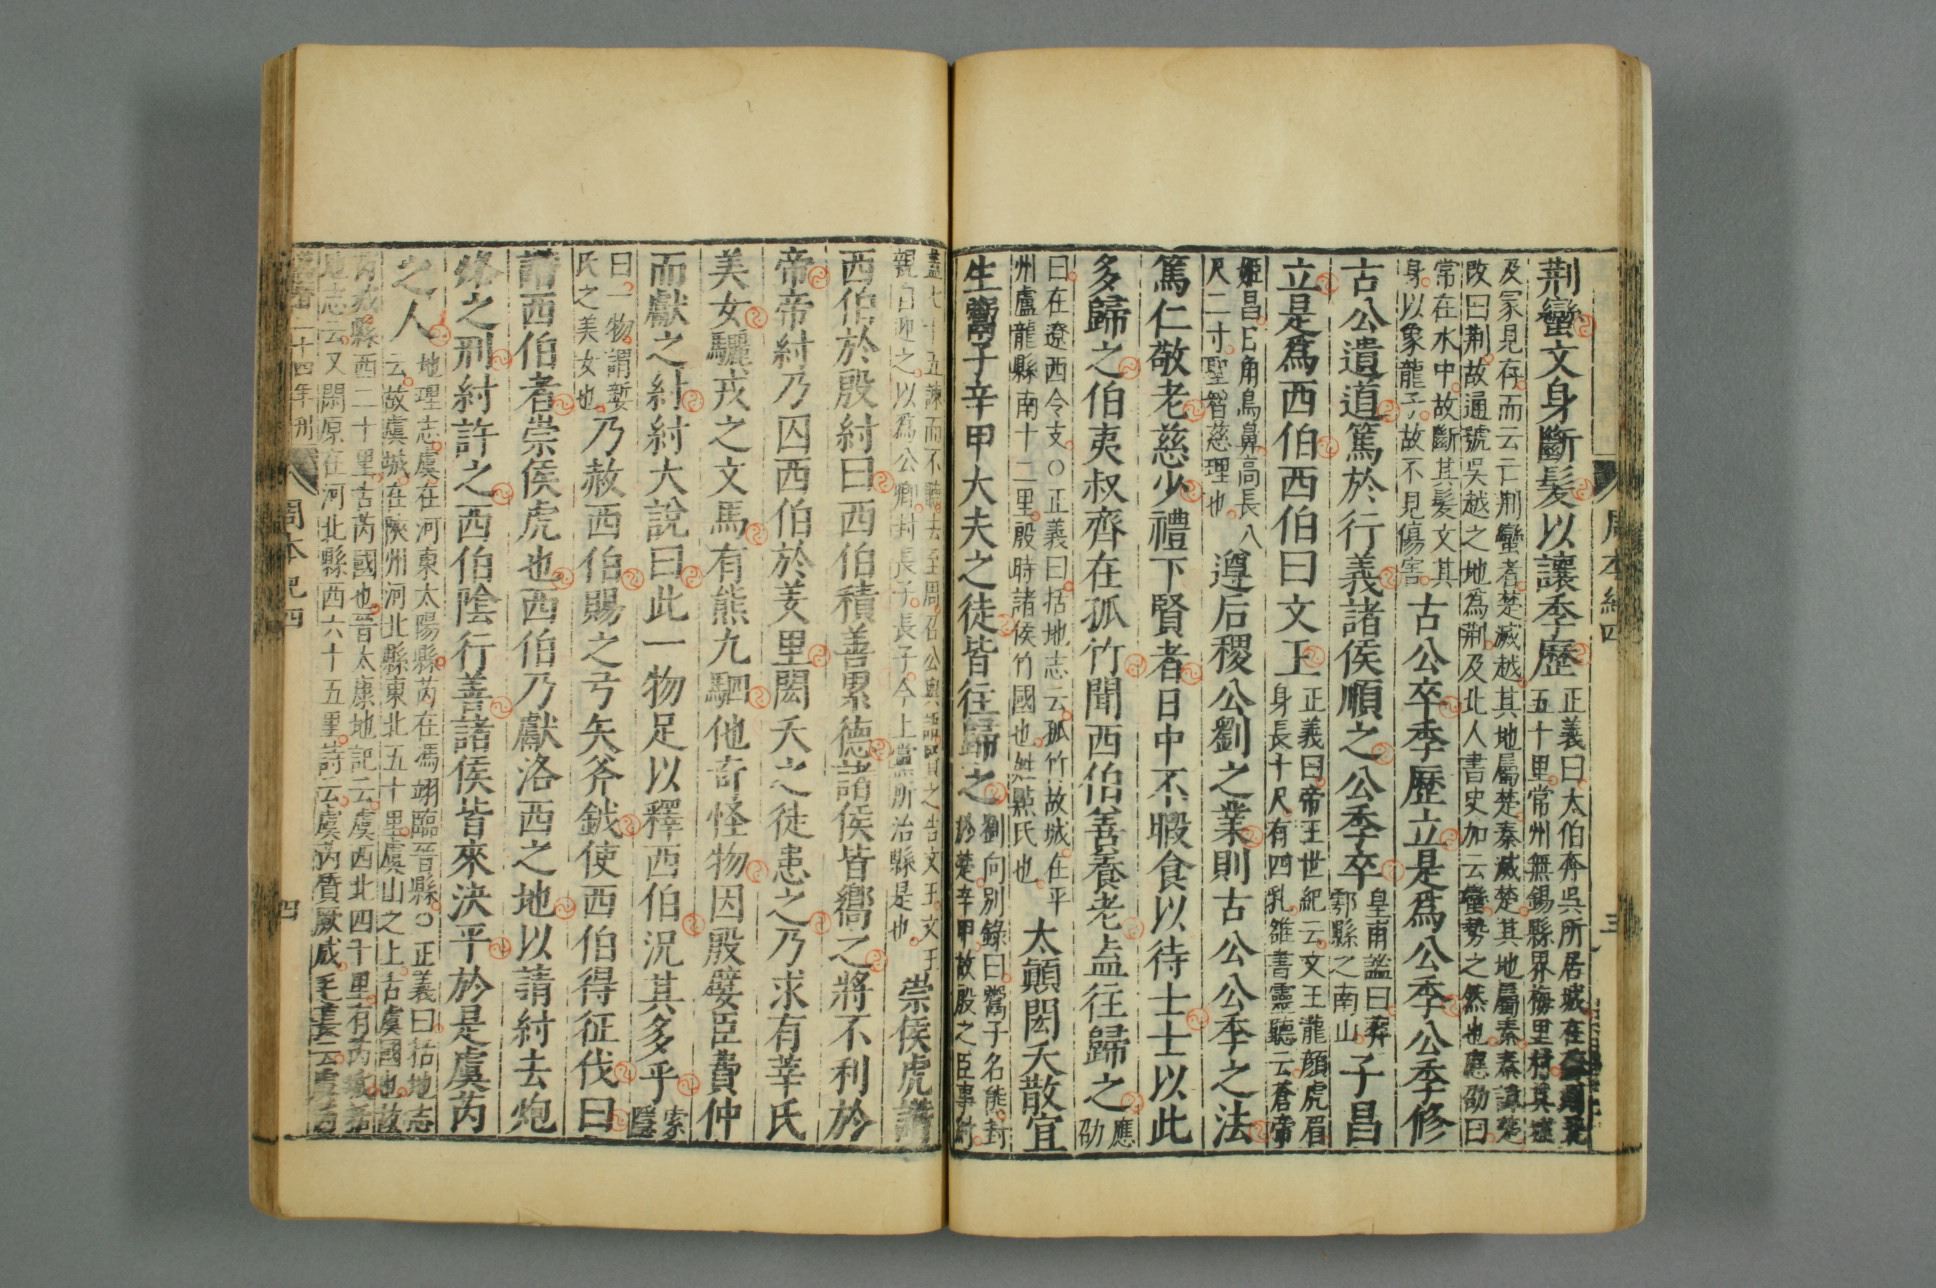 荆蠻文身斷髮以讓季歷正義曰太伯奔吳所居城在
五十里常州無錫縣界梅里村其
及冢見存而云亡荆蠻者楚滅越其地屬楚秦滅楚其地屬秦秦諱楚
改曰荆故通號吳越之地爲荆及北人書史加云蠻勢之然也應劭曰
常在水中故斷其髮文其
身以象龍子故不見傷害古公卒季歷立是爲公季公季修
古公遺道篤於行義諸侯順之公季卒皇甫謐曰葬
鄠縣之南山子昌
立是爲西伯西伯曰文王正義曰帝王世紀云文王龍顔虎眉
身長十尺有四乳雒書靈聽云蒼帝
姬昌日角鳥鼻高長八
尺二寸聖智慈理也遵后稷公劉之業則古公公季之法
篤仁敬老慈少禮下賢者日中不暇食以待士士以此
多歸之伯夷叔齊在孤竹聞西伯善養老盍往歸之應
劭
曰在遼西令支○正義曰括地志云孤竹故城在平
州盧龍縣南十二里殷時諸侯竹國也姓墨氏也太顚閎夭散宜
生鬻子辛甲大夫之徒皆往歸之劉向別錄曰鬻子名熊封
於楚辛甲故殷之臣事紂
周本紀四
三
蓋七十五諫而不聽去至周召公與語賢之告文王文王
親自迎之以爲公卿封長子長子今上黨所治縣是也崇侯虎譖
西伯於殷紂曰西伯積善累德諸侯皆嚮之將不利於
帝帝紂乃囚西伯於羑里閎夭之徒患之乃求有莘氏
美女驪戎之文馬有熊九駟他奇怪物因殷嬖臣費仲
而獻之紂紂大說曰此一物足以釋西伯況其多乎索
隱
曰一物謂㜪
氏之美女也乃赦西伯賜之弓矢斧鉞使西伯得征伐曰
譖西伯者崇侯虎也西伯乃獻洛西之地以請紂去炮
烙之刑紂許之西伯陰行善諸侯皆來決平於是虞芮
之人地理志虞在河東太陽縣芮在馮翊臨晉縣○正義曰括地志
云故虞城在陝州河北縣東北五十里虞山之上古虞國也故
芮城縣西二十里古芮國也晉太康地記云虞西北四十里有芮城括
地志云又閑原在河北縣西六十五里詩云虞芮質厥成毛萇云虞芮
周本紀四
四